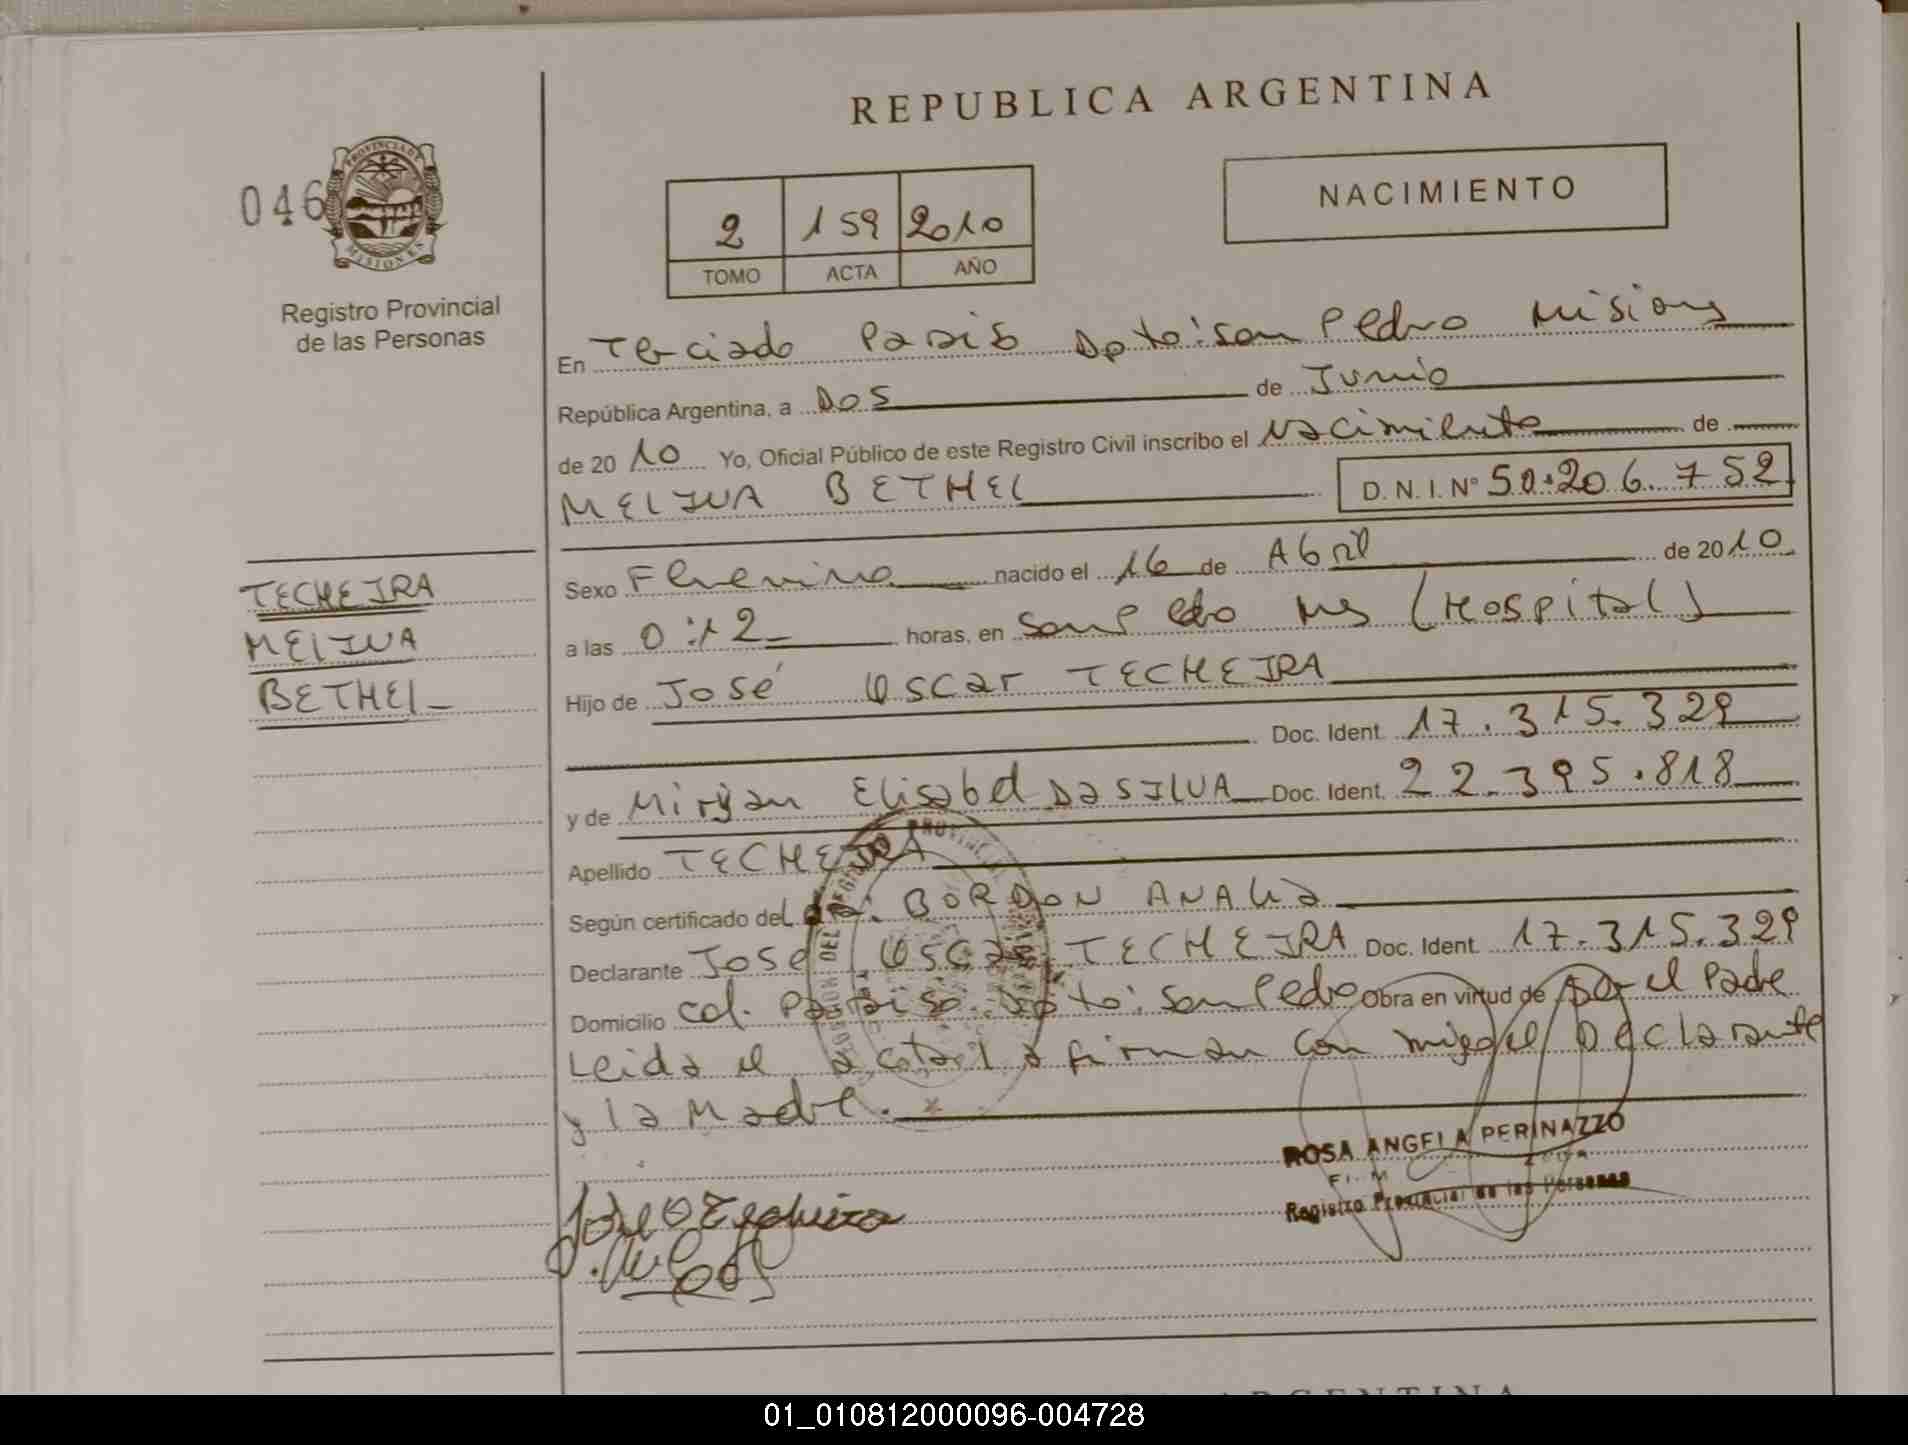 REPUBLICA ARGENTINA
046
PROVINCIA DE
MISIONES
Registro Provincial
de las Personas
NACIMIENTO
2 159 2010
TOMO ACTA AÑO
En Terciado Paraiso Dpto: San Pedro Misiones
República Argentina, a DOS de Junio
de 2010 Yo, Oficial Público de este Registro Civil inscribo el Nacimiento de
MELINA BETHEL D.N.I. Nº 50.206.752
Sexo Femenino nacido el 16 de Abril de 2010
TECHEIRA
MELINA
BETHEL
a las 0:12 horas, en San Pedro Ms (Hospital)
Hijo de José Oscar TECHEIRA
Doc. Ident. 17.315.329
y de Miryan Elisabet DA SILVA Doc. Ident. 22.395.818
Apellido TECHEIRA
Según certificado del Dra. BORDON ANALIA
Declarante José Oscar TECHEIRA Doc. Ident. 17.315.329
Domicilio Col. Paraiso Dpto: San Pedro Obra en virtud de por el Padre
Leida el acta la firman con migo el Declarante
y la Madre.
ROSA ANGELA PERINAZZO
Registro Provincial de las Personas
ARGENTINA
01_010812000096-004728